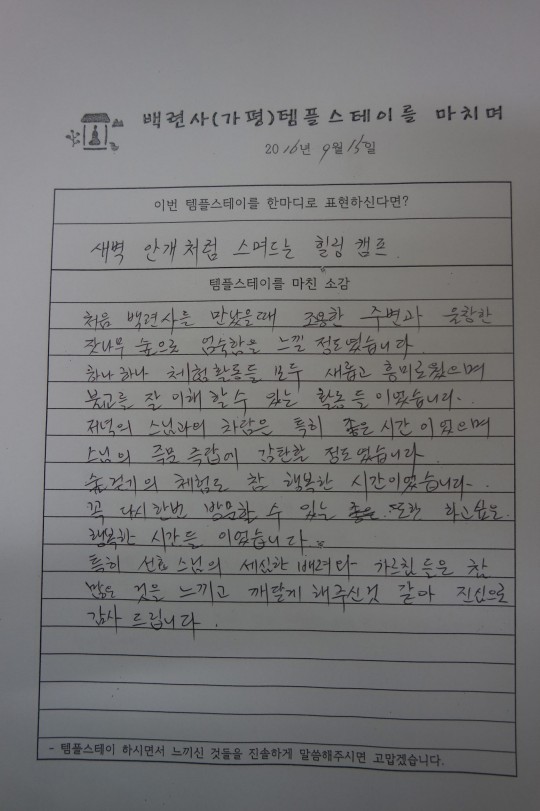 백련사(가평)템플스테이를 마치며
2016년 9월 15일
이번 템플스테이를 한마디로 표현하신다면?
새벽 안개처럼 스며드는 힐링 캠프.
템플스테이를 마친 소감
처음 백련사를 만났을때 조용한 주변과 울창한
잣나무 숲으로 엄숙함을 느낄 정도였습니다
하나하나 체험활동들 모두 새롭고 흥미로웠으며
불교를 잘 이해할수 있는 활동들이었습니다.
저녁의 스님과의 차담은 특히 좋은 시간이었으며
스님의 즉문 즉답에 감탄할 정도였습니다
숲걷기의 체험도 참 행복한 시간이었습니다.
꼭 다시한번 방문할 수 있는 또한 하고싶은
행복한 시간들 이었습니다.
특히 선효스님의 세심한 배려와 가르침들은 참
많은 것을 느끼고 깨닫게 해주신것 같아 진심으로
감사 드립니다.
- 템플스테이 하시면서 느끼신 것들을 진솔하게 말씀해주시면 고맙겠습니다.